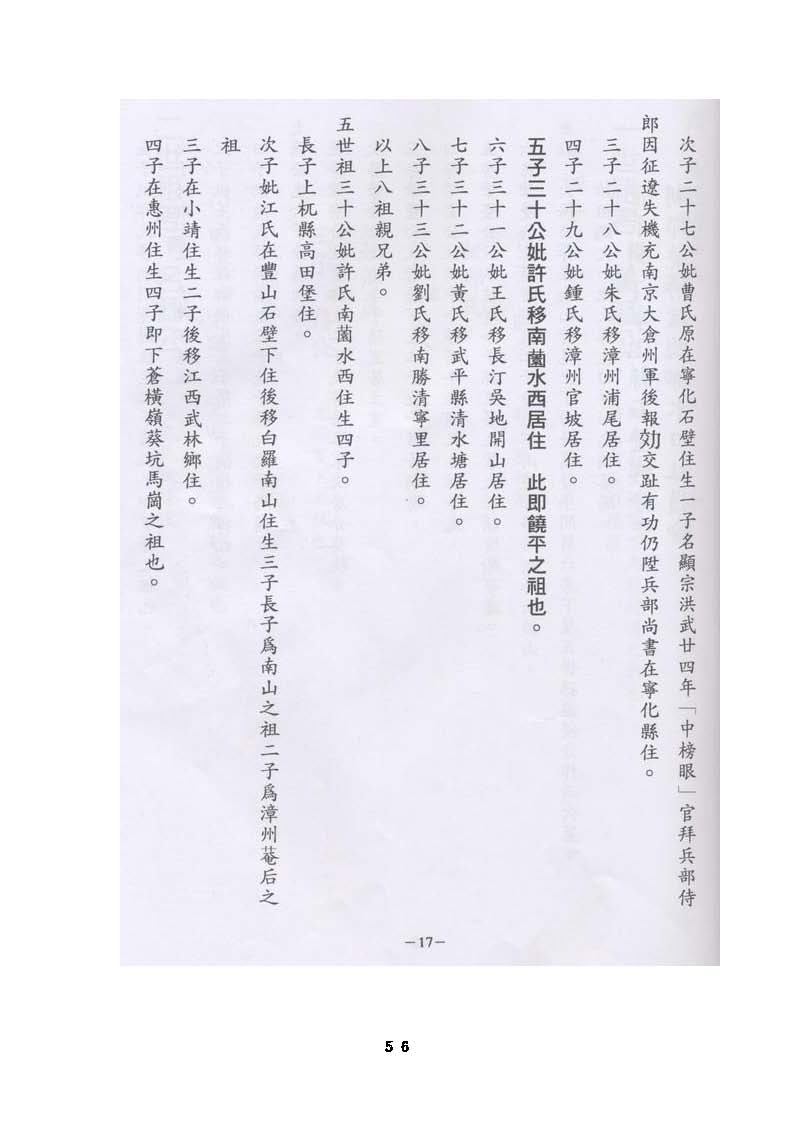 次子二十七公妣曹氏原在寧化石壁住生一子名顯宗洪武廿四年「中榜眼」官拜兵部侍
郎因征遼失機充南京大倉州軍後報効交趾有功仍陞兵部尚書在寧化縣住。
三子二十八公妣朱氏移漳州浦尾居住。
四子二十九公妣鍾氏移漳州官坡居住。
五子三十公妣許氏移南薗水西居住　此即饒平之祖也。
六子三十一公妣王氏移長汀吳地開山居住。
七子三十二公妣黃氏移武平縣清水塘居住。
八子三十三公妣劉氏移南勝清寧里居住。
以上八祖親兄弟。
五世祖三十公妣許氏南薗水西住生四子。
長子上杭縣高田堡住。
次子妣江氏在豐山石壁下住後移白羅南山住生三子長子爲南山之祖二子爲漳州菴后之
祖
三子在小靖住生二子後移江西武林鄉住。
四子在惠州住生四子即下蒼橫嶺葵坑馬崗之祖也。
－17－
56